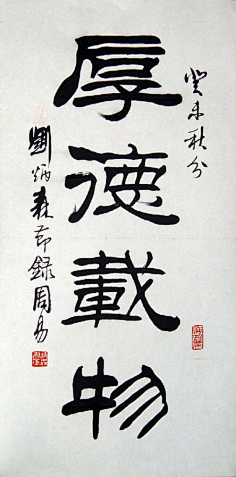 厚德載物
癸未秋分
劉炳森節錄周易